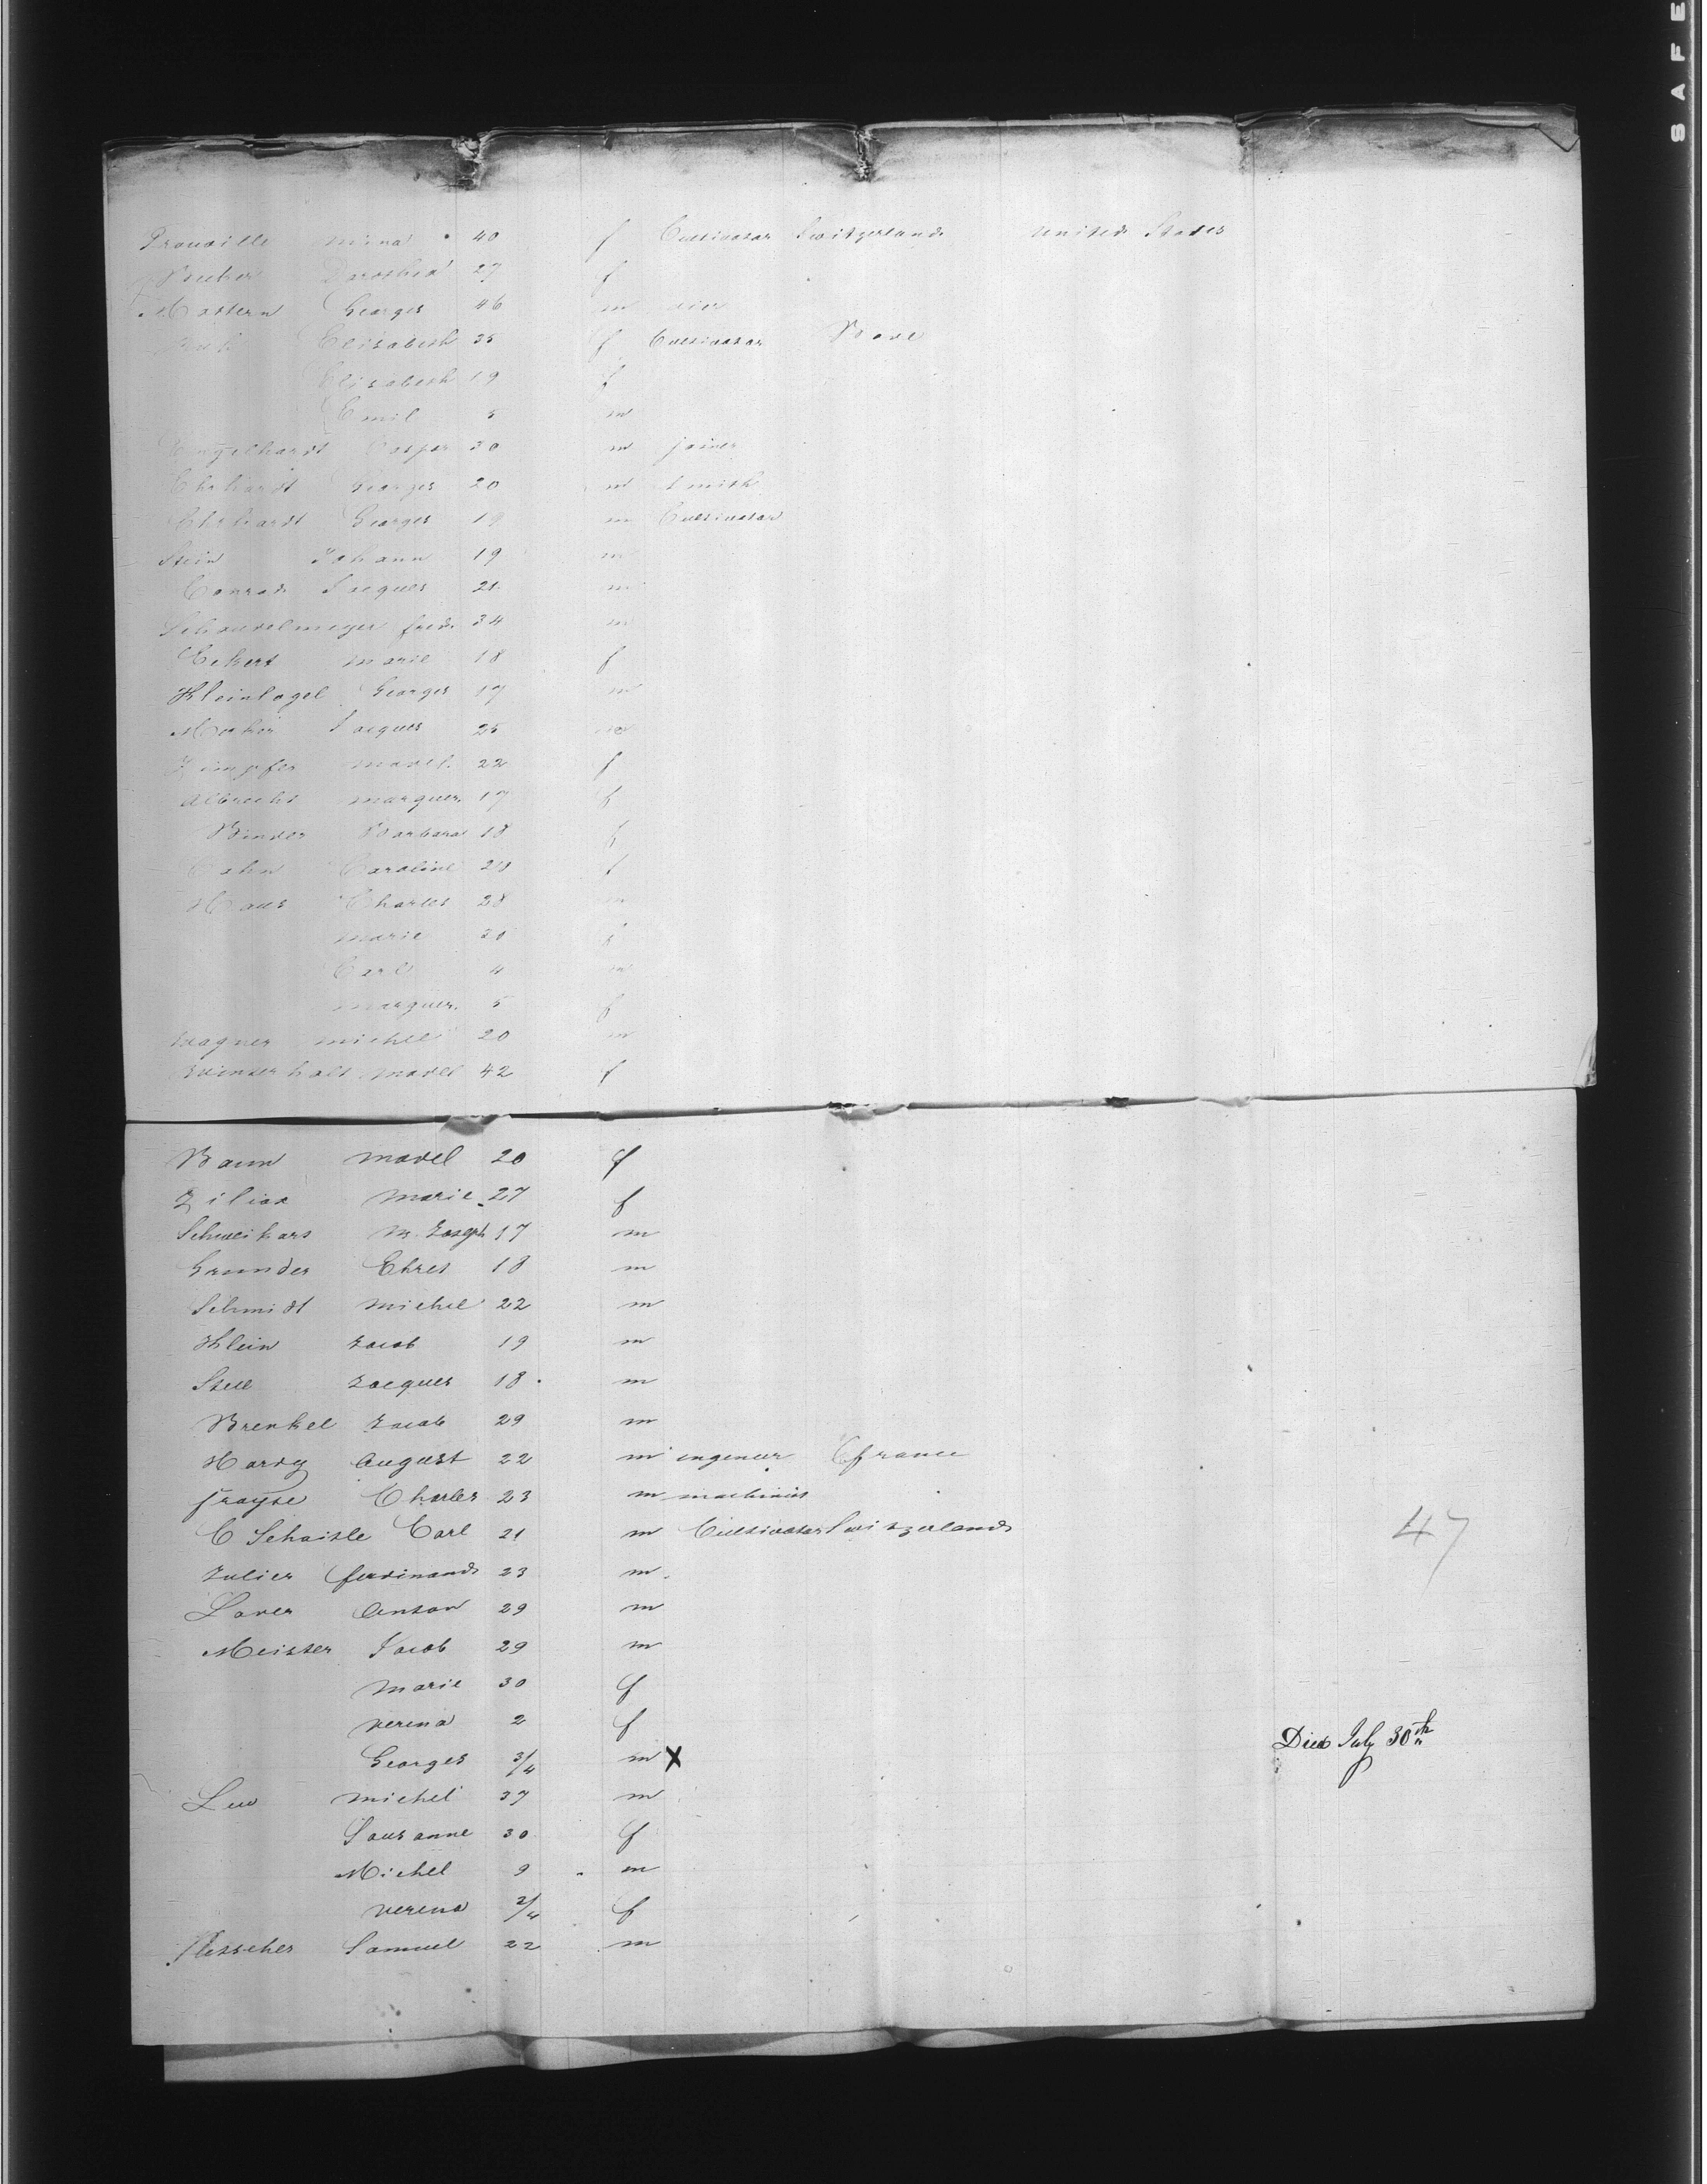 SAFE
Prouville mina 40 f Cultivator Switzerland United States
Bucher Dorothea 27 f
Mattern Georges 46 m
Elisabeth 35 f Cultivator Bade
Elisabeth 19 f
Emil 5 m
Engelhardt Caspar 30 m joiner
Ehrhardt Georges 20 m smith
Ehrhardt Georges 19 m Cultivator
Stein Johann 19 m
Conrad Jacques 21 m
Schaudelmeyer fred. 34 m
Eckert marie 18 f
Kleinlogel Georges 17 m
Jacques 25 m
Zimpfer madel. 22 f
Albrecht marguer. 17 f
Binder Barbara 18 f
Cahn Caroline f
Haus Charles 28 m
marie f
Carl 4 m
marguer. 5 f
Wagner michel 20 m
Winterhalt madel 42 f
Baum madel 20 f
Ziliox marie 27 f
Schweikars m. Joseph 17 m
Grunder Chret 18 m
Schmidt michel 22 m
Klein Jacob 19 m
Jacques 18 m
Brenkel Jacob 29 m
Hardy August 22 m ingenieur france
frayse Charles 23 m machinist
C Schaitle Carl 21 m Cultivator Switzerland
47
Julier ferdinand 23 m
Laver Anton 29 m
Meister Jacob 29 m
marie 30 f
verena 2 f
Died July 30th
Georges 3/4 m X
Leu michel 37 m
Sousanne 30 f
Michel 9 m
verena 2/4 f
Samuel 22 m